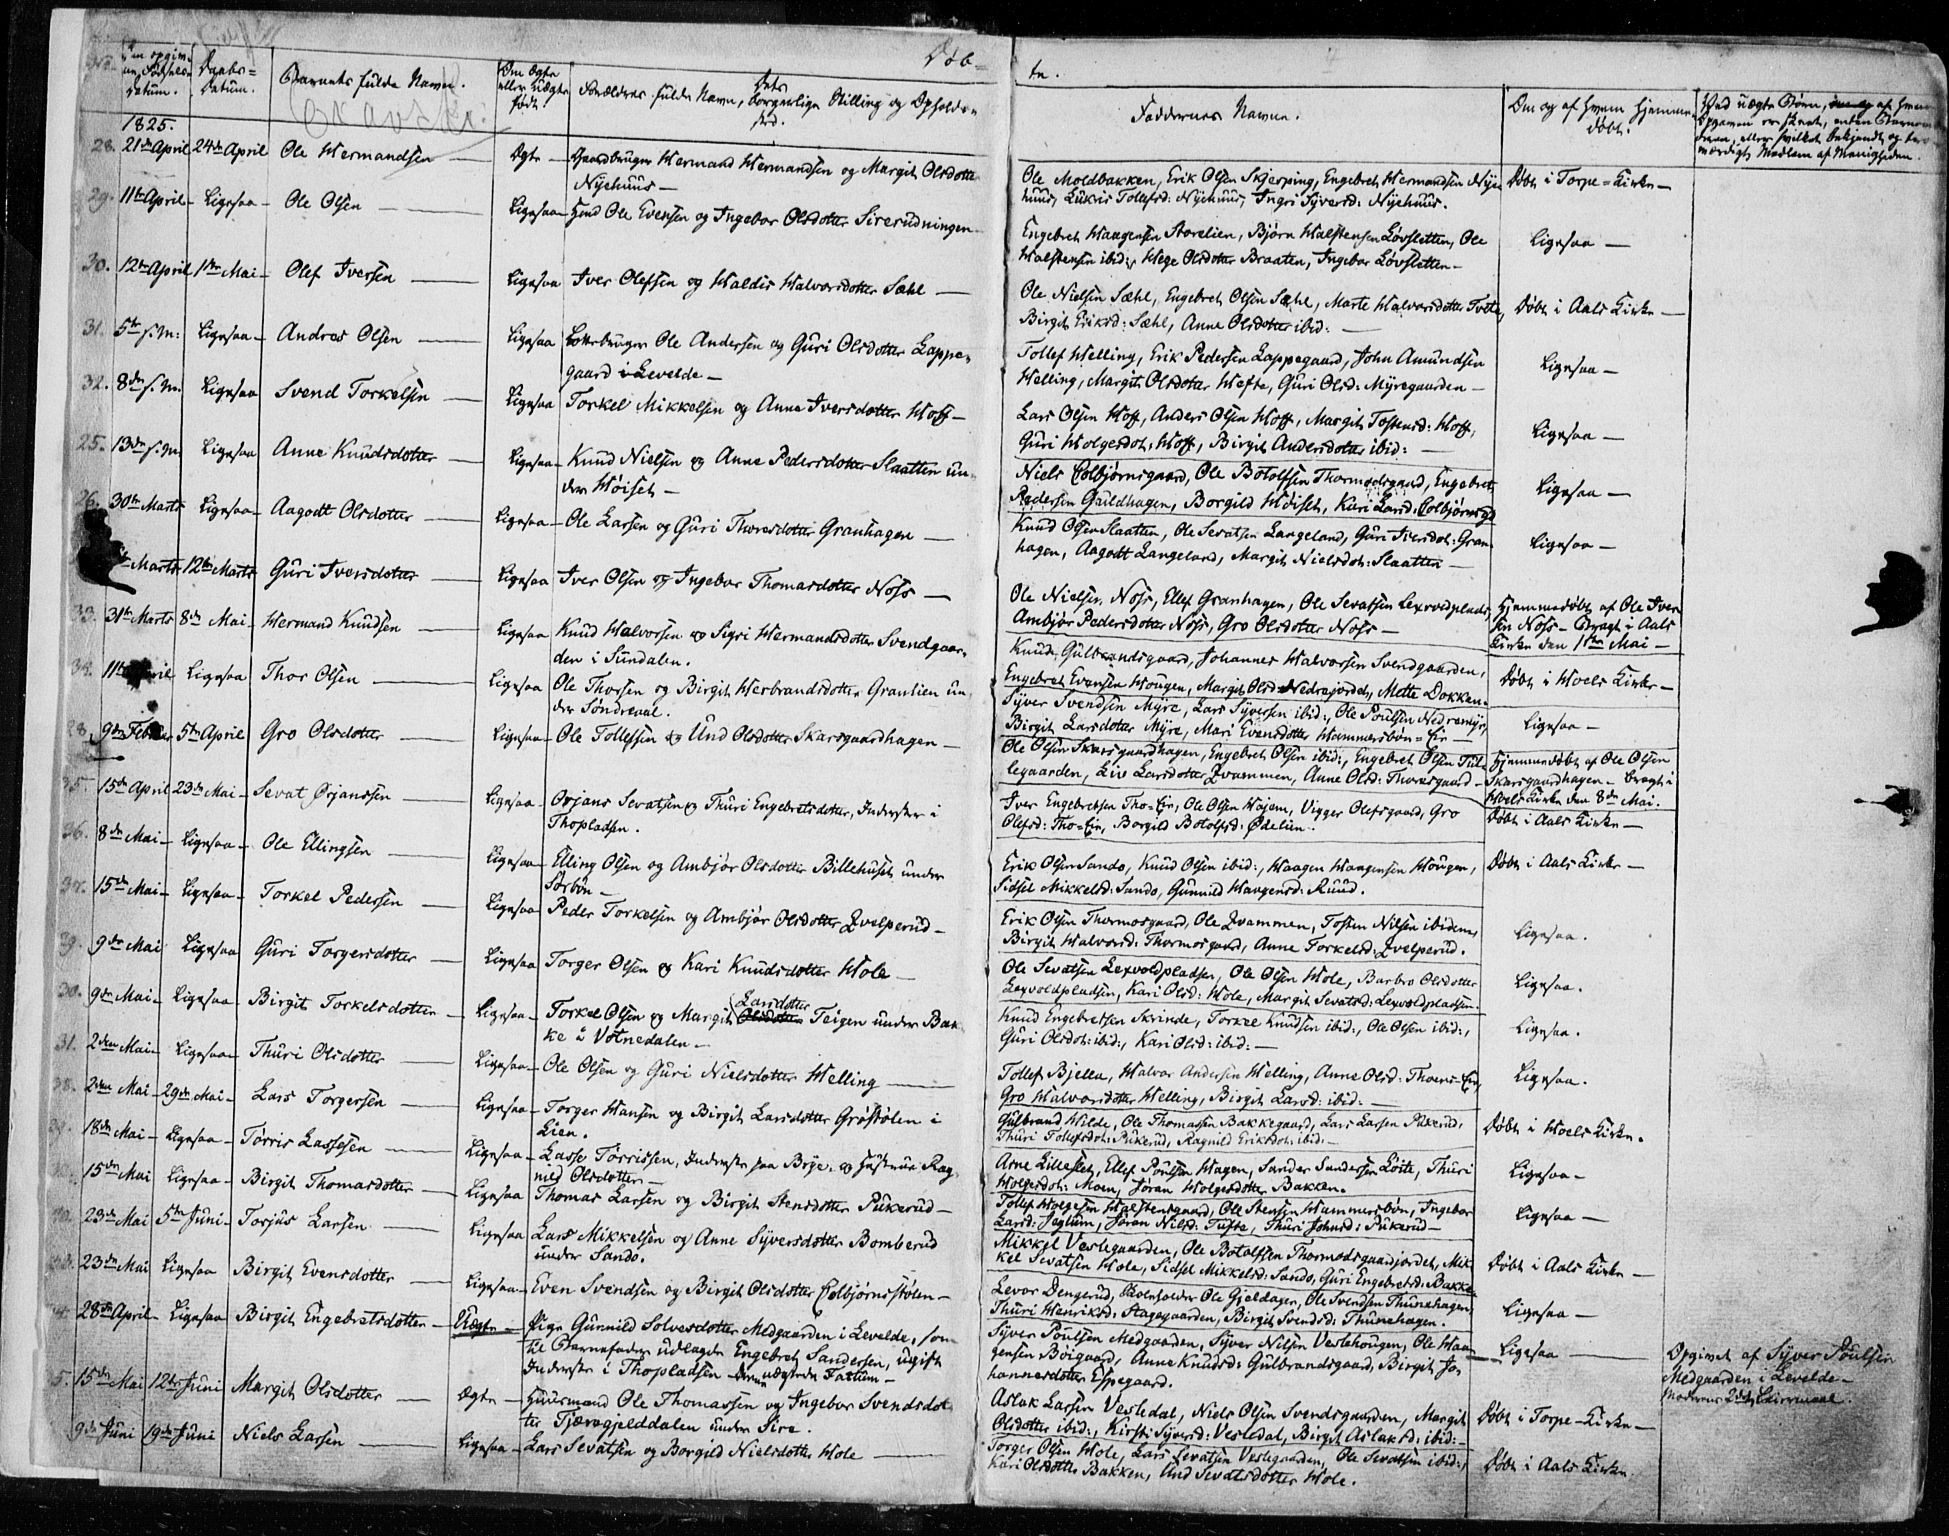 Døb- te.
No. Den opgivne Fødsels Datum. Daabs= Datum. Barnets fulde Navn. Om Ægte eller Uægte født. Forældres fulde Navn, Dets borgerlige Stilling og Opholdssted. Faddernes Navne. Om og af hvem hjemmedøbt.
1825.
28. 21de April 24de April Ole Hermandsen Ægte Gaardbruger Hermand Hermandsen og Margit Olsdotter
Nyehuus
Ole Moldbakken, Erik Olsen Skjerping, Engebret Hermandsen Nye
huus, Tollefsd: Nyehuus, Ingri Syversd: Nyehuus. Døbt i Torpe=Kirke
29. 11te April Ligesaa Ole Olsen Ligesaa Ole Evensen og Ingebor Olsdotter Sirerudningen
Engebret Haagensen, Bjørn Halstensen Løvsletten, Ole
Halstensen ibid:, Hege Olsdotter Braaten, Ingebor Løvsletten Ligesaa
30. 12te April 1ste Mai Olef Iversen Ligesaa Iver Olefsen og Haldis Halvorsdotter Sæhl
Ole Nielsen Sæhl, Engebret Olsen Sæhl, Marte Halvorsdotter Tvete,
Birgit Eriksd: Sæhl, Anne Olsdotter ibid: Døbt i Aals Kirke
31. 5te s.M: Ligesaa Andres Olsen Ligesaa Ole Andersen og Guri Olsdotter Lappe=
gaard i Levelde
Tollef Helling, Erik Pedersen Lappegaard, John Amundsen
Helling, Margit Olsdotter Hefte, Guri Olsd: Myregaarden Ligesaa
32. 8de s.M. Ligesaa Svend Torkelsen Ligesaa Torkel Mikkelsen og Anne Iversdotter Hoff
Lars Olsen Hoff, Anders Olsen Hoff, Margit Tostensd: Hoff,
Guri Holgersdot: Hoff, Birgit Andersdotter ibid: Ligesaa
25. 13de s.M. Ligesaa Anne Knudsdotter Ligesaa Knud Nielsen og Anne Pedersdotter Slaatten un=
der Høiset
Niels Colbjørnsgaard, Ole Botolfsen Thormodsgaard, Engebret
Pedersen Guldhagen, Borgild Høiset, Kari Larsd: Colbjørnsgd Ligesaa
26. 30te Marts Ligesaa Aagodt Olsdotter Ligesaa Ole Larsen og Guri Thoresdotter Granhagen
Knud Olsen Slaatten, Ole Sevatsen Langeland, Guri Iversdot: Gran
hagen, Aagodt Langeland, Margit Nielsdot: Slaatten Ligesaa
Marts 12te Marts Guri Iversdotter Ligesaa Iver Olsen og Ingebor Thomasdotter Noss
Ole Nielsen Noss, Ellef Granhagen, Ole Sevatsen Lexvoldplads,
Ambjør Pedersdotter Noss, Gro Olsdotter Noss Hjemmedøbt af Ole Iver
sen Noss - Bragt i Aals
Kirke den 1ste Mai
33. 31te Marts 8de Mai Hermand Knudsen Ligesaa Knud Halvorsen og Sigri Hermandsdotter Svendgaar=
den i Sundalen.
Knud Gulbrandsgaard, Johannes Halvorsen Svendgaarden,
Engebret Evensen Hougen, Margit Olsd: Nedrejordet, Mette Dokken. Døbt i Hoels Kirke
34. 11te April Ligesaa Thor Olsen Ligesaa Ole Thorsen og Birgit Herbrandsdotter Grønlien un
der Søndreval.
Syver Svendsen Myre, Lars Syversen ibid:, Ole Poulsen Nedremyr,
Birgit Larsdotter Myre, Mari Evensdotter Hammersbøn=Eie Ligesaa
28. 9de Februar 5te April Gro Olsdotter Ligesaa Ole Tollefsen og Und Olsdotter Skarsgaardhagen
Ole Olsen Skarsgaardhagen, Engebret Olsen ibid:, Engebret Olsen Tuf
legaarden, Liv Larsdotter Qvammen, Anne Olsd: Thoresgaard Hjemmedøbt af Ole Olsen
Skarsgaardhagen - Bragt i
Hoels Kirke den 8de Mai.
35. 15de April 23de Mai Sevat Ørjanssen Ligesaa Ørjans Sevatsen og Thuri Engebretsdotter, Inderster i
Thopladsen.
Iver Engebretsen Tho=Eie, Ole Olsen Hajem, Vigger Olefsgaard, Gro
Olefsd: Tho=Eie, Borgild Botolfsd: Ødelien. Døbt i Aals Kirke
36. 8de Mai Ligesaa Ole Ellingsen Ligesaa Elling Olsen og Ambjør Olsdotter Billehuset under
Sørbøn
Erik Olsen Sando, Knud Olsen ibid:, Haagen Haagensen Hougen,
Sidsel Mikkelsd: Sando, Gunnild Haagensd: Ruud. Døbt i Aals Kirke
37. 15de Mai Ligesaa Torkel Pedersen Ligesaa Peder Torkelsen og Ambjør Olsdotter Qvelperud
Erik Olsen Thormosgaard, Ole Qvammen, Tosten Nilsen ibidem,
Birgit Halvorsd: Thormosgaard, Anne Torkelsd: Qvelperud. Ligesaa.
39. 9de Mai Ligesaa Guri Torgersdotter Ligesaa Torger Olsen og Kari Knudsdotter Hole
Ole Sevatsen Lexvoldpladsen, Ole Olsen Hole, Barbro Olsdotter
Lexvoldpladsen, Kari Olsd: Hole, Margit Sevatsd: Lexvoldpladsen. Ligesaa.
30. 9de Mai Ligesaa Birgit Torkelsdotter Ligesaa Torkel Olsen og Margit Larsdotter Teigen under Bak
ke i Votnedalen
Knud Engebretsen Skrinde, Torkel Knudsen ibid:, Ole Olsen ibid:,
Guri Olsdot: ibid:, Kari Olsd: ibid: Ligesaa.
31. 2den Mai Ligesaa Thuri Olsdotter Ligesaa Ole Olsen og Guri Nielsdotter Helling
Tollef Bjella, Halvor Andersen Helling, Anne Olsd: Thoens=Eie,
Gro Halvorsdotter Helling, Birgit Larsd: ibid: Ligesaa.
38. 2den Mai 29de Mai Lars Torgersen Ligesaa Torger Hansen og Birgit Larsdotter Grøtstølen i
Lien.
Gulbrand Hilde, Ole Thomassen Bakkegaard, Lars Larsen Pukerud,
Thuri Tollefsdot: Pukerud, Ragnild Eriksdot: ibid: Døbt i Hoels Kirke.
18de Mai Ligesaa Torris Lassesen Ligesaa Lasse Torrissen, Inderste paa Brye, og Hustrue Rag
nild Olsdotter
Arne Lilleslet, Ellef Poulsen Hagen, Sander Sandersen Løite, Thuri
Holgersdot: Moen, Jøran Holgersdotter Bakken. Ligesaa
15de Mai Ligesaa Birgit Thomasdotter Ligesaa Thomas Larsen og Birgit Stensdotter Pukerud
Tollef Holgesen Halstensgaard, Ole Stensen Hammersbøn, Ingebor
Larsd: Jeglum, Jøran Nilsd: Tufte, Thuri Johnsd: Pukerud Ligesaa
23de Mai 5te Juni Torjus Larsen Ligesaa Lars Mikkelsen og Anne Syversdotter Bomberud
under Sando.
Mikkel Veslegaarden, Ole Botolfsen Thormodsgaardjordet, Mik
kel Sevatsen Hole, Sidsel Mikkelsd: Sando, Guri Engebretsd: Bakke Døbt i Aals Kirke
33. 23de Mai Ligesaa Birgit Evensdotter Ligesaa Even Svendsen og Birgit Olsdotter Colbjørnsstølen
Levor Dengerud, Ole Gjeldager, Ole Svendsen Thunehagen,
Thuri Henriksd: Hagegaarden, Birgit Svendsd: Thunehagen. Ligesaa
28de April Ligesaa Birgit Engebretsdotter Uægte Pige Gunnild Solvesdotter Medgaarden i Levelde, som
til Barnefader udlagde Engebret Sandersen, ugift
Inderste i Thopladsen
Syver Poulsen Medgaarden, Syver Nilsen Vestehougen, Ole Haa
gensen Bøigaard, Anne Knudsd: Gulbrandsgaard, Birgit Jo
hannesdotter Espegaard. Ligesaa Opgivet af Syver Poulsen
Medgaarden i Levelde
Moderens 2det Leiermaal.
5. 15de Mai 12te Juni Margit Olsdotter Ægte Huusmand Ole Thomassen og Ingebor Svendsdot
ter Tjæregjelddalen under Sire.
Aslak Larsen Vesledal, Niels Olsen Svendsgaarden, Margit
Olsdotter ibid:, Kirsti Syversd: Vesledal, Birgit Aslaksd: ibid: Døbt i Torpe-Kirke
9de Juni 19de Juni Niels Larsen Ligesaa Lars Sevatsen og Borgild Nielsdotter Hole
Torger Olsen Hole, Lars Sevatsen Veslegaarden, Ole Sevatsen ibid:,
Kari Olsdotter Bakken, Und Sevatsdotter Hole. Døbt i Aals Kirke